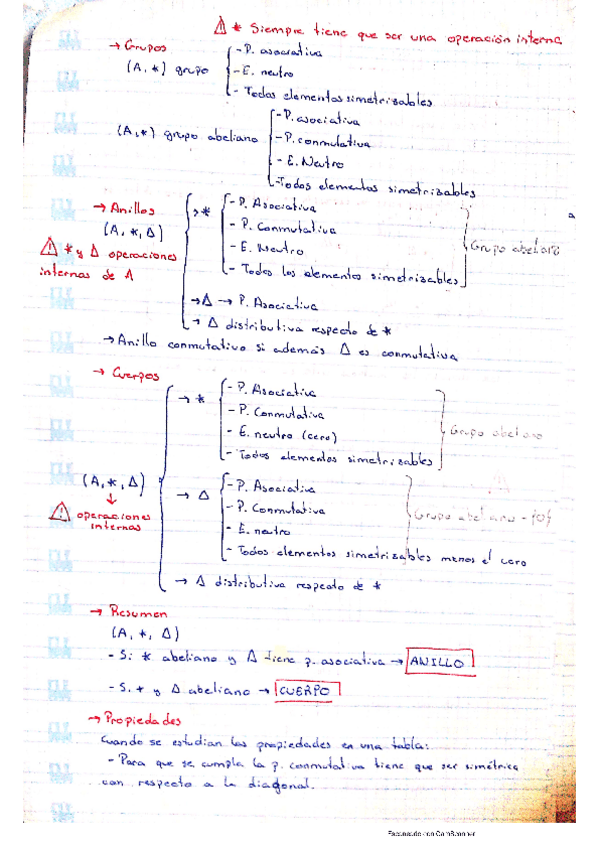 ⚠ * Siempre tiene que ser una operación interna
→ Grupos
(A, *) grupo
- P. asociativa
- E. neutro
- Todos elementos simetrizables
(A, *) grupo abeliano
- P. asociativa
- P. conmutativa
- E. Neutro
- Todos elementos simetrizables
→ Anillos
(A, *, Δ)
⚠ * y Δ operaciones
internas de A
→ *
- P. Asociativa
- P. Conmutativa
- E. Neutro
- Todos los elementos simetrizables
Grupo abeliano
→ Δ → P. Asociativa
→ Δ distributiva respecto de *
→ Anillo conmutativo si además Δ es conmutativa
→ Cuerpos
(A, *, Δ)
↓
⚠ operaciones
internas
→ *
- P. Asociativa
- P. Conmutativa
- E. neutro (cero)
- Todos elementos simetrizables
Grupo abeliano
→ Δ
- P. Asociativa
- P. Conmutativa
- E. neutro
- Todos elementos simetrizables menos el cero
Grupo abeliano - {0}
→ Δ distributiva respecto de *
→ Resumen
(A, *, Δ)
- Si * abeliano y Δ tiene p. asociativa → ANILLO
- Si * y Δ abeliano → CUERPO
→ Propiedades
Cuando se estudian las propiedades en una tabla:
- Para que se cumpla la p. conmutativa tiene que ser simétrica
con respecto a la diagonal.
Escaneado con CamScanner